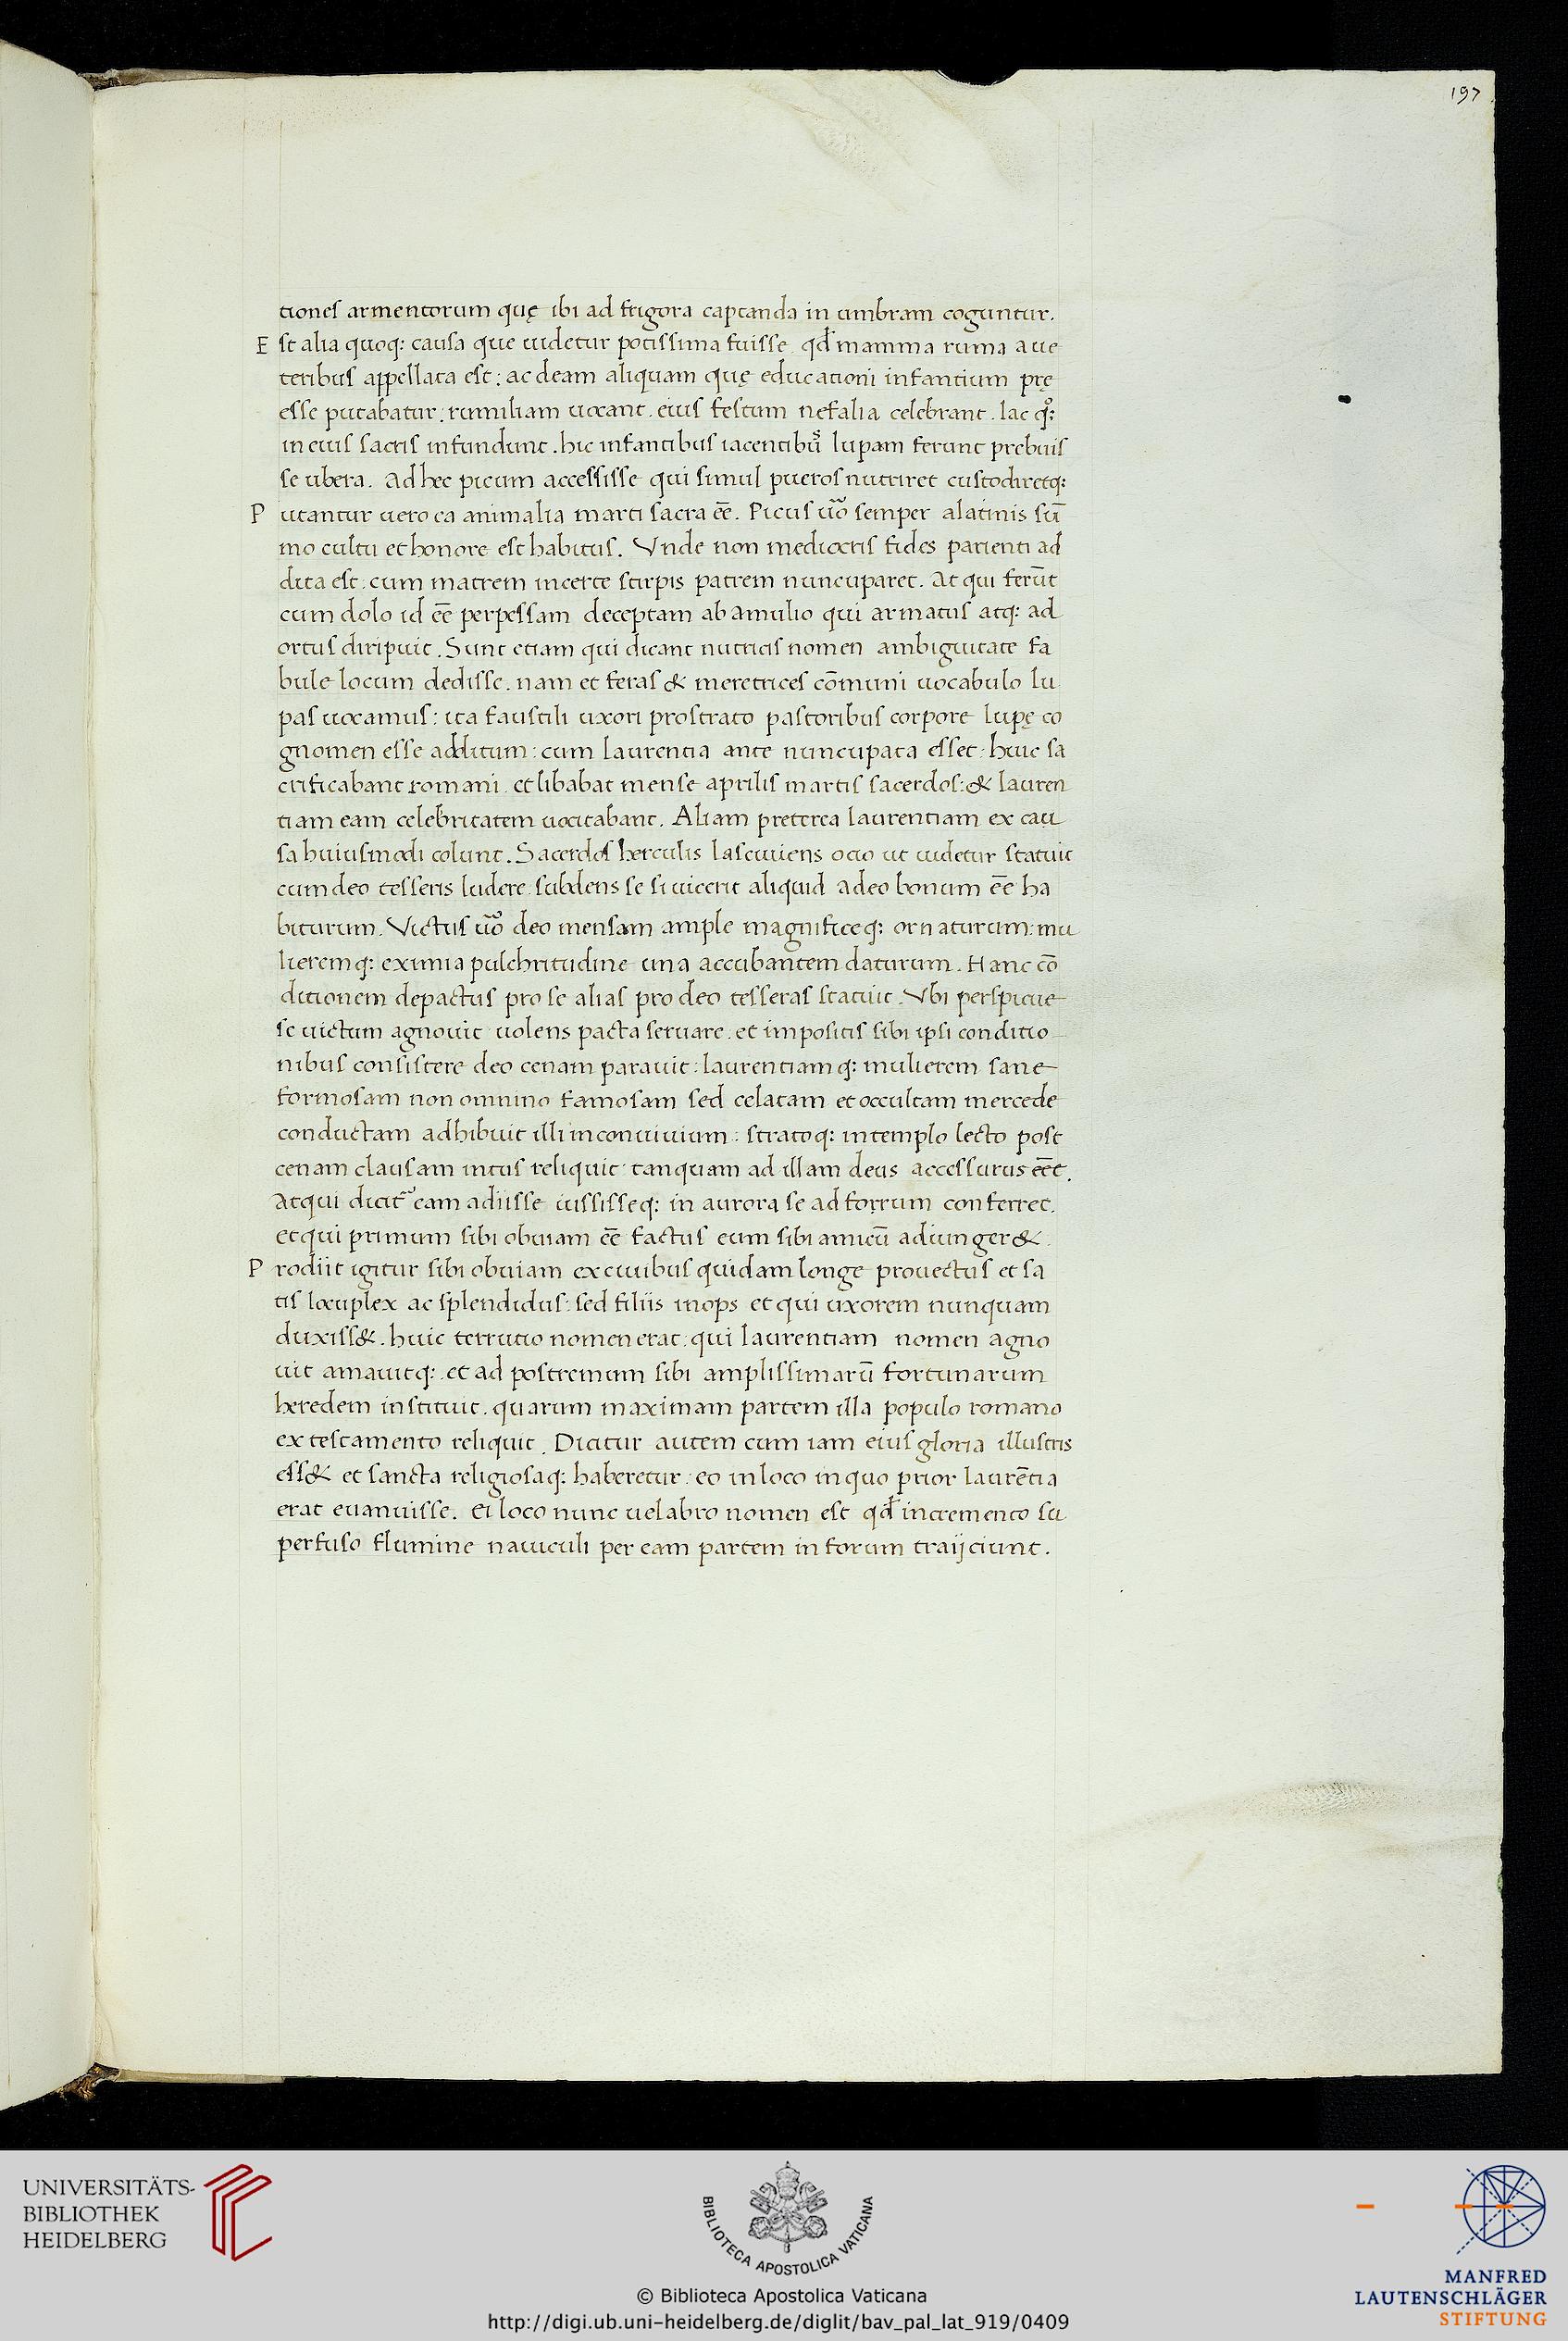 197
tiones armentorum quę ibi ad frigora captanda in umbram coguntur.
Est alia quoq: causa que uidetur potissima fuisse. qd̄ mamma ruma a ue
teribus appellata est: ac deam aliquam quę educationi infantium prę
esse putabatur: rumiliam uocant. eius festum nefalia celebrant. lac qo:
in eius sacris infundunt. hic infantibus iacentibus lupam ferunt prebuis
se ubera. Ad hec picum accessisse qui simul pueros nutriret custodiretq:
Putantur uero ea animalia marti sacra eē. Picus uo semper a latinis sū
mo cultu et honore est habitus. Vnde non mediocris fides parienti ad
dita est: cum matrem incerte stirpis patrem nuncuparet. At qui ferūt
eum dolo id eē perpessam deceptam ab amulio qui armatus atq: ad
ortus diripuit. Sunt etiam qui dicant nutricis nomen ambiguitate fa
bule locum dedisse. nam et feras & meretrices cōmuni uocabulo lu
pas uocamus: ita faustili uxori prostrato pastoribus corpore lupę co
gnomen esse additum: cum laurentia ante nuncupata esset: huic sa
crificabant romani. et libabat mense aprilis martis sacerdos: & lauren
tiam eam celebritatem uocitabant. Aliam preterea laurentiam ex cau
sa huiusmodi colunt. Sacerdos herculis lasciuiens ocio ut uidetur statuit
cum deo tesseris ludere: subdens se si uicerit aliquid a deo bonum eē ha
biturum. Victus uo deo mensam ample magnificeq: ornaturum: mu
lieremq: eximia pulchritudine una accubantem daturum. Hanc cō
ditionem depactus pro se alias pro deo tesseras statuit. Vbi perspicue
se uictum agnouit uolens pacta seruare. et impositis sibi ipsi conditio
nibus consistere deo cenam parauit: laurentiamq: mulierem sane
formosam non omnino famosam sed celatam et occultam mercede
conductam adhibuit illi in conuiuium: stratoq: in templo lecto post
cenam clausam intus reliquit: tanquam ad illam deus accessurus eēt.
Atqui dicit eam adiisse iussisseq: in aurora se ad forrum conferret.
et qui primum sibi obuiam eē factus eum sibi amicū adiunger&.
Prodiit igitur sibi obuiam ex ciuibus quidam longe prouectus et sa
tis locuplex ac splendidus: sed filiis inops et qui uxorem nunquam
duxiss&. huic terrutio nomen erat: qui laurentiam nomen agno
uit amauitq: et ad postremum sibi amplissimarū fortunarum
heredem instituit. quarum maximam partem illa populo romano
ex testamento reliquit. Dicitur autem cum iam eius gloria illustris
ess& et sancta religiosaq: haberetur: eo in loco in quo prior laurētia
erat euanuisse. Ei loco nunc uelabro nomen est qd̄ incremento su
perfuso flumine nauiculi per eam partem in forum traijciunt.
UNIVERSITÄTS-
BIBLIOTHEK
HEIDELBERG
BIBLIOTECA APOSTOLICA VATICANA
© Biblioteca Apostolica Vaticana
http://digi.ub.uni-heidelberg.de/diglit/bav_pal_lat_919/0409
MANFRED
LAUTENSCHLÄGER
STIFTUNG